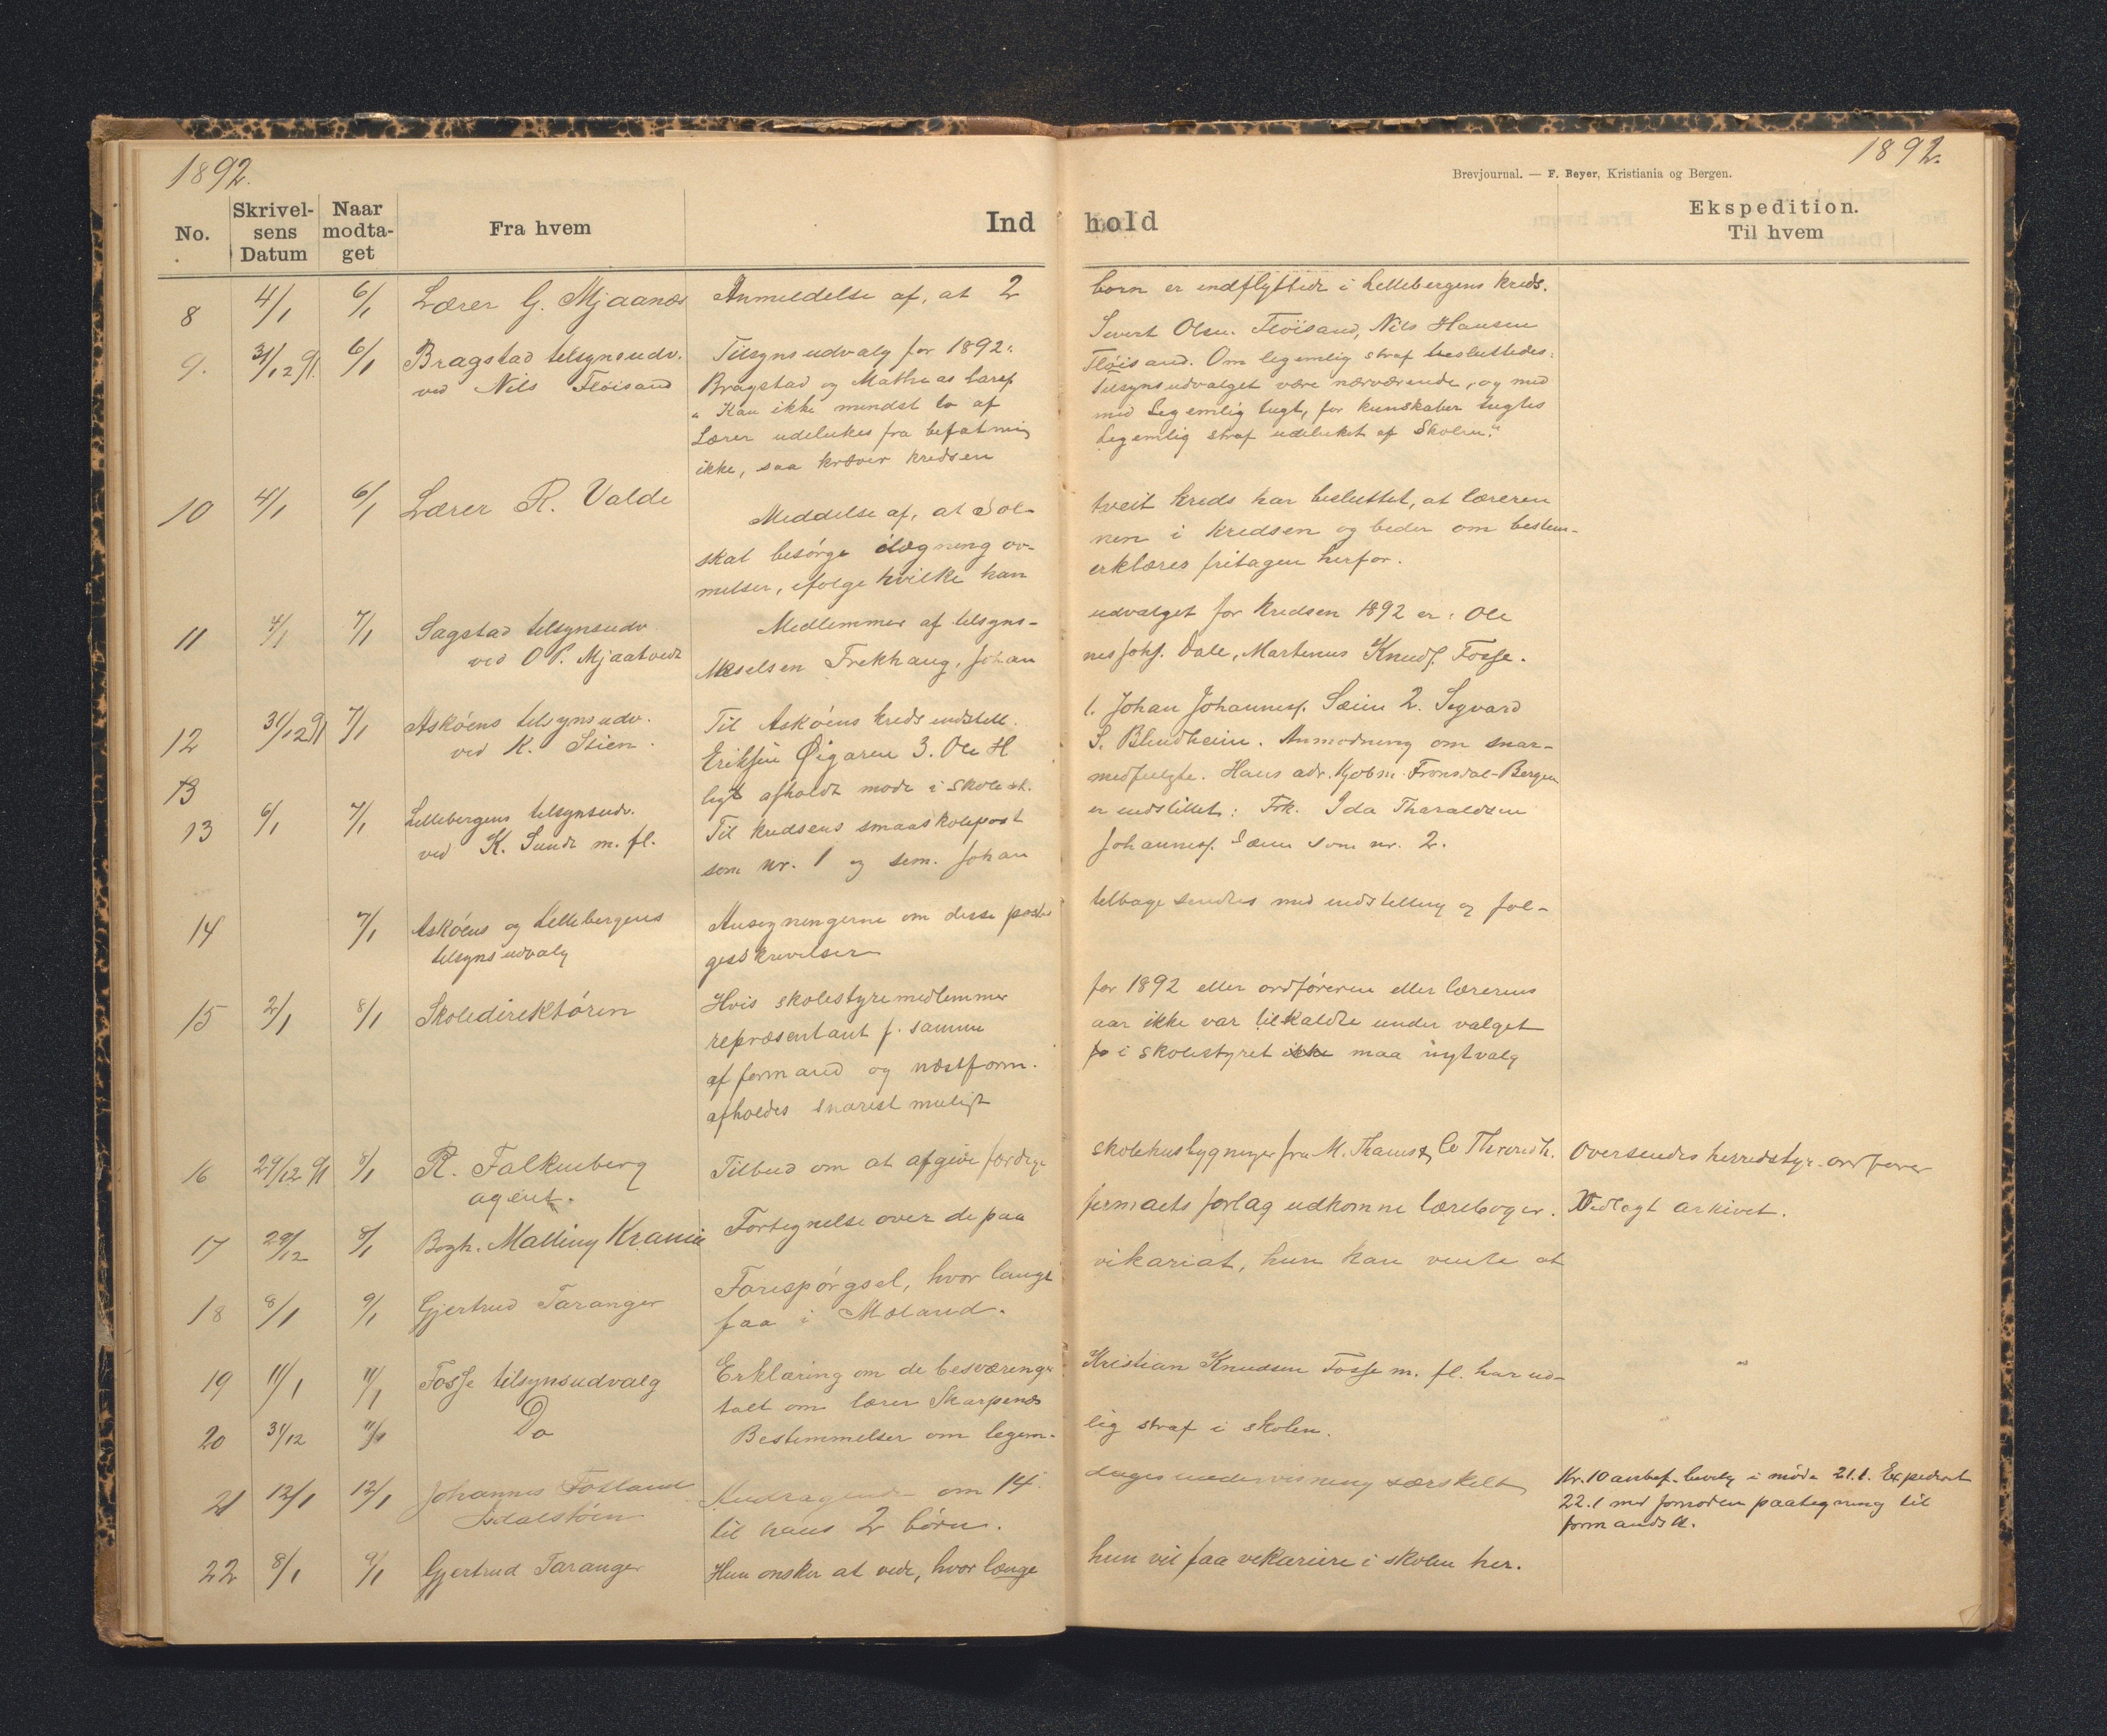 1892.
1892.
Brevjournal. — F. Beyer, Kristiania og Bergen.
No. Skrivelsens Datum Naar modtaget Fra hvem Ind hold Ekspedition. Til hvem
8 4/1 6/1 Lærer G. Mjaanæs Anmeldelse af, at 2 børn er indflyttede i Lillebergens kreds.
9. 31/12 91. 6/1 Bragstad tilsynsudv. Tilsynsudvalg for 1892: Sivert Olsen Fløisand, Nils Hansen
ved Nils Fløisand Bragstad og Mathias Larss Fløisand. Om legemlig straf besluttedes:
"Kan ikke mindst to af Tilsynsudvalget være nærværende, og med
Lærer udelukes fra befatning med Legemlig tugt, for kunskaber tugtes
ikke, saa kræver kredsen Legemlig straf udelucket af Skolen."
10 4/1 6/1 Lærer R. Valde Meddelse af, at Sol- tveit kreds har besluttet, at læreren
skal besørge ilægning ov- nen i kredsen og beder om bestem-
melser, ifølge hvilke han erklæres fritagen herfor.
11 4/1 7/1 Sagstad tilsynsudv. Medlemmer af tilsyns- udvalget for kredsen 1892 er: Ole
ved O P. Mjaatvedt Mikselsen Trekhaug, Johan nes Johs. Dale, Martinus Knuds. Fosse.
12 31/12 91 7/1 Askøens tilsynsudv. Til Askøens kreds indstill. 1. Johan Johanness. Sæim 2. Sigvard
ved K. Stien. Eriksen Øigaren 3. Ole H S. Blindheim. Anmodning om snar-
13 ligt afholdt møde i skolest. medfulgte. Hans adr. Kjøbm. Fronsdal-Bergen
13 6/1 7/1 Lillebergens tilsynsudv. Til kredsens smaaskolepost er indstillet: Frk. Ida Tharaldsen
ved K. Sunde m. fl. som nr. 1 og sem. Johan Johanness. Sæim som nr. 2.
14 7/1 Askøens og Lillebergens Ansøgningerne om disse poster tilbage sendes med indstilling og føl-
tilsynsudvalg gesskrivelser
15 2/1 8/1 Skoledirektøren Hvis skolestyremedlemmer for 1892 eller ordføreren eller lærerens
repræsentant f. samme aar ikke var tilkaldte under valget
af formand og næstform. i skolestyret ikke maa nytvalg
afholdes snarest muligt
16 29/12 91 8/1 R. Falkenberg Tilbud om at afgive færdige skolehusbygninger fra M. Thams & Co Throndh. Oversendes herredstyr. ordfører
agent.
17 29/12 8/1 Bogh. Malling Krania Fortegnelse over de paa firmaets forlag udkomne lærebøger. Vedlagt arkivet.
18 8/1 9/1 Gjertrud Taranger Forespørgsel, hvor langt vikariat, hun kan vente at
faa i Mæland.
19 11/1 11/1 Fosse tilsynsudvalg Erklæring om de besværinger Kristian Knudsen Fosse m. fl. har ud- "
talt om lærer Skarpenæs
20 31/12 11/1 Do Bestemmelser om legem- lig straf i skolen.
21 12/1 12/1 Johannes Fosland Andragende om 14 dages undervisning særskilt Kr. 10 anbef. bevilg i møde 21.1. Expederet
Isdalstøen til hans 2 børn. 22.1 med fornøden paategning til
formandsk.
22 8/1 9/1 Gjertrud Taranger Hun ønsker at vide, hvor længe hun vil faa vikariere i skolen her.